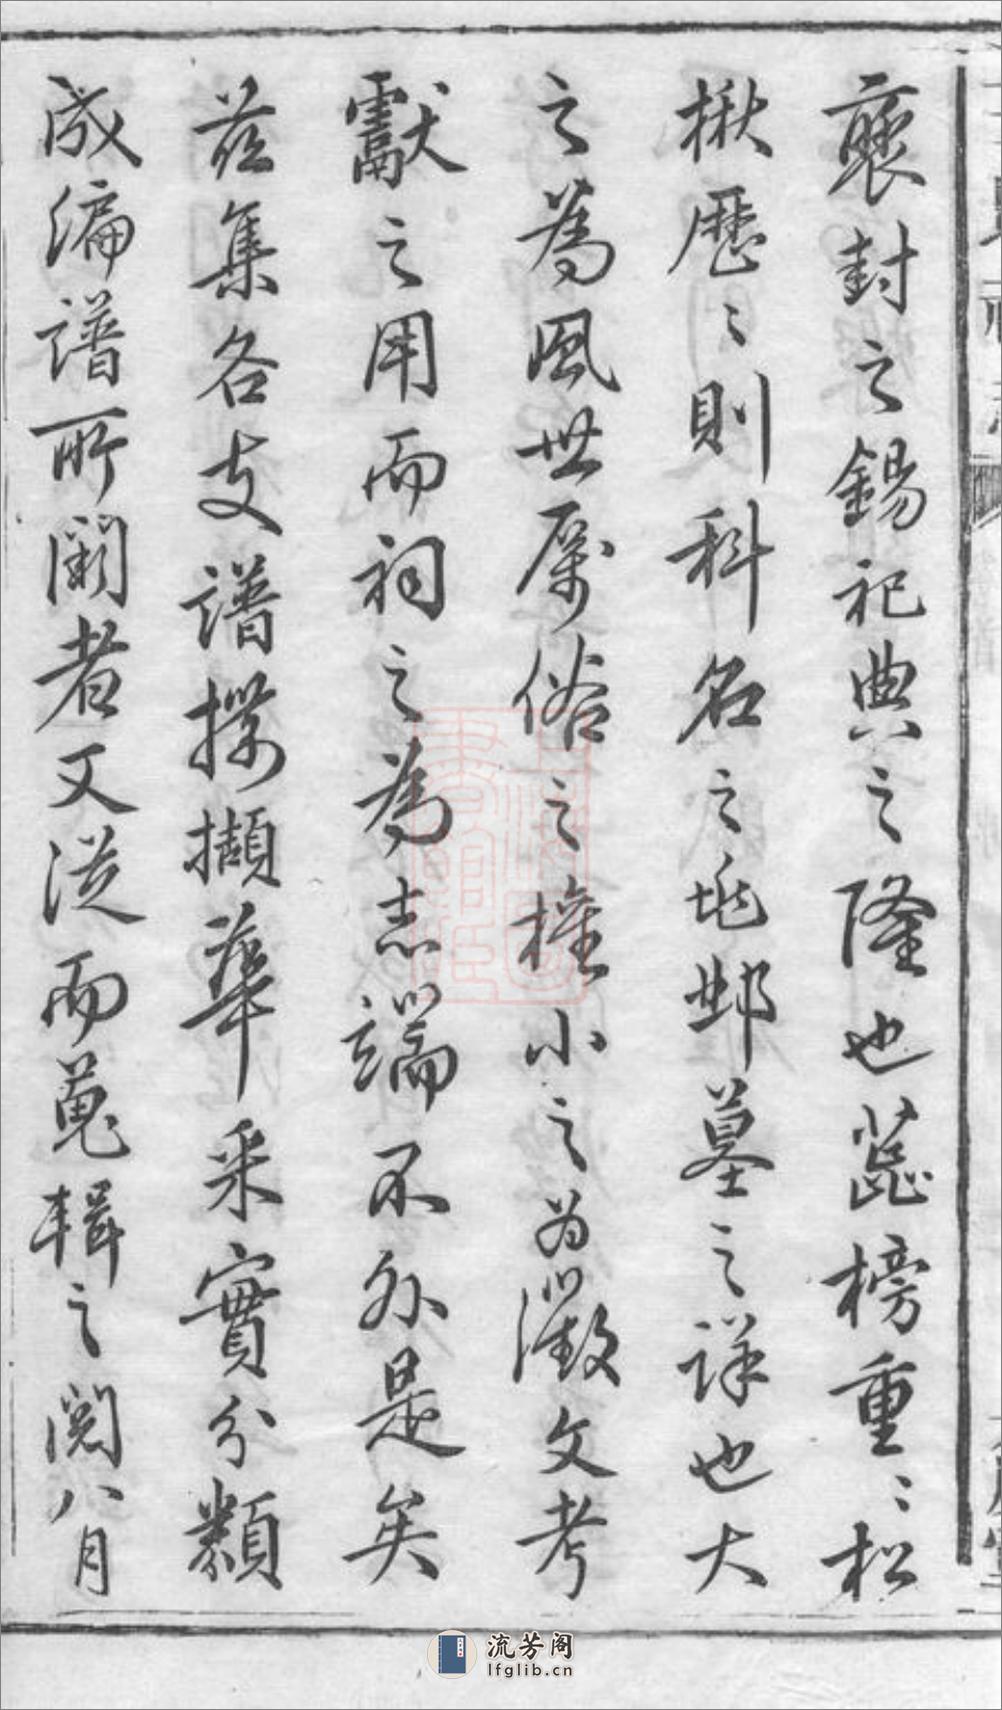 褒封之錫祀典之隆也蕊榜重〻松
楸歷〻則科名之垗邺墓之詳也大
之為風世厲俗之權小之为徵文考
獻之用而祠之為志端不外是矣
茲集各支譜採擷華采實分類
成编譜所闕者又從而蒐輯之閱八月
流芳阁
lfglib.cn